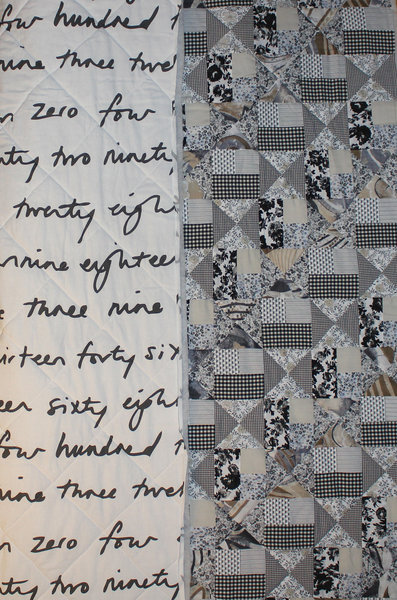 four hundred
nine three
zero four
two ninety
twenty eight
nine eighteen
three nine
forty six
sixty eight
four hundred
nine three
zero four
two ninety